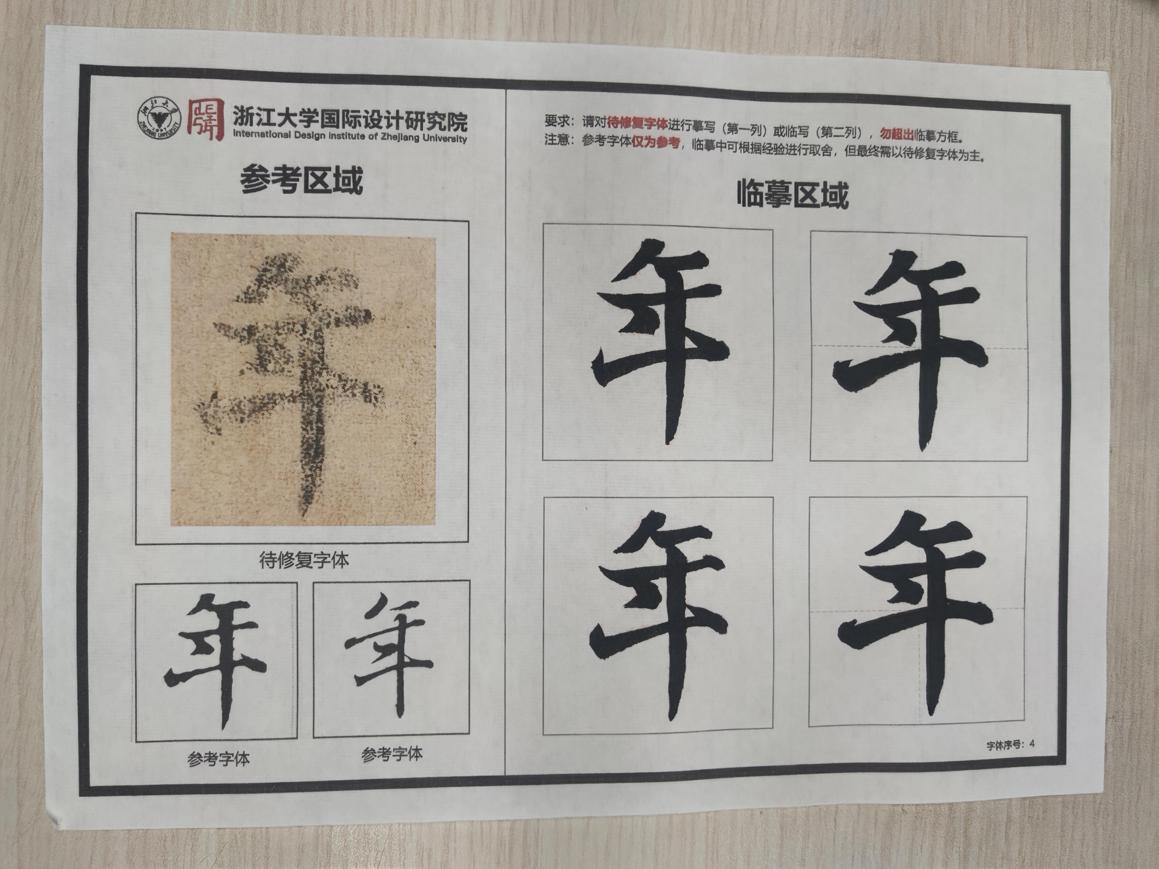 浙江大学国际设计研究院
International Design Institute of Zhejiang University
参考区域
年
待修复字体
年
年
参考字体
参考字体
要求：请对待修复字体进行摹写（第一列）或临写（第二列），勿超出临摹方框。
注意：参考字体仅为参考，临摹中可根据经验进行取舍，但最终需以待修复字体为主。
临摹区域
年
年
年
年
字体序号：4